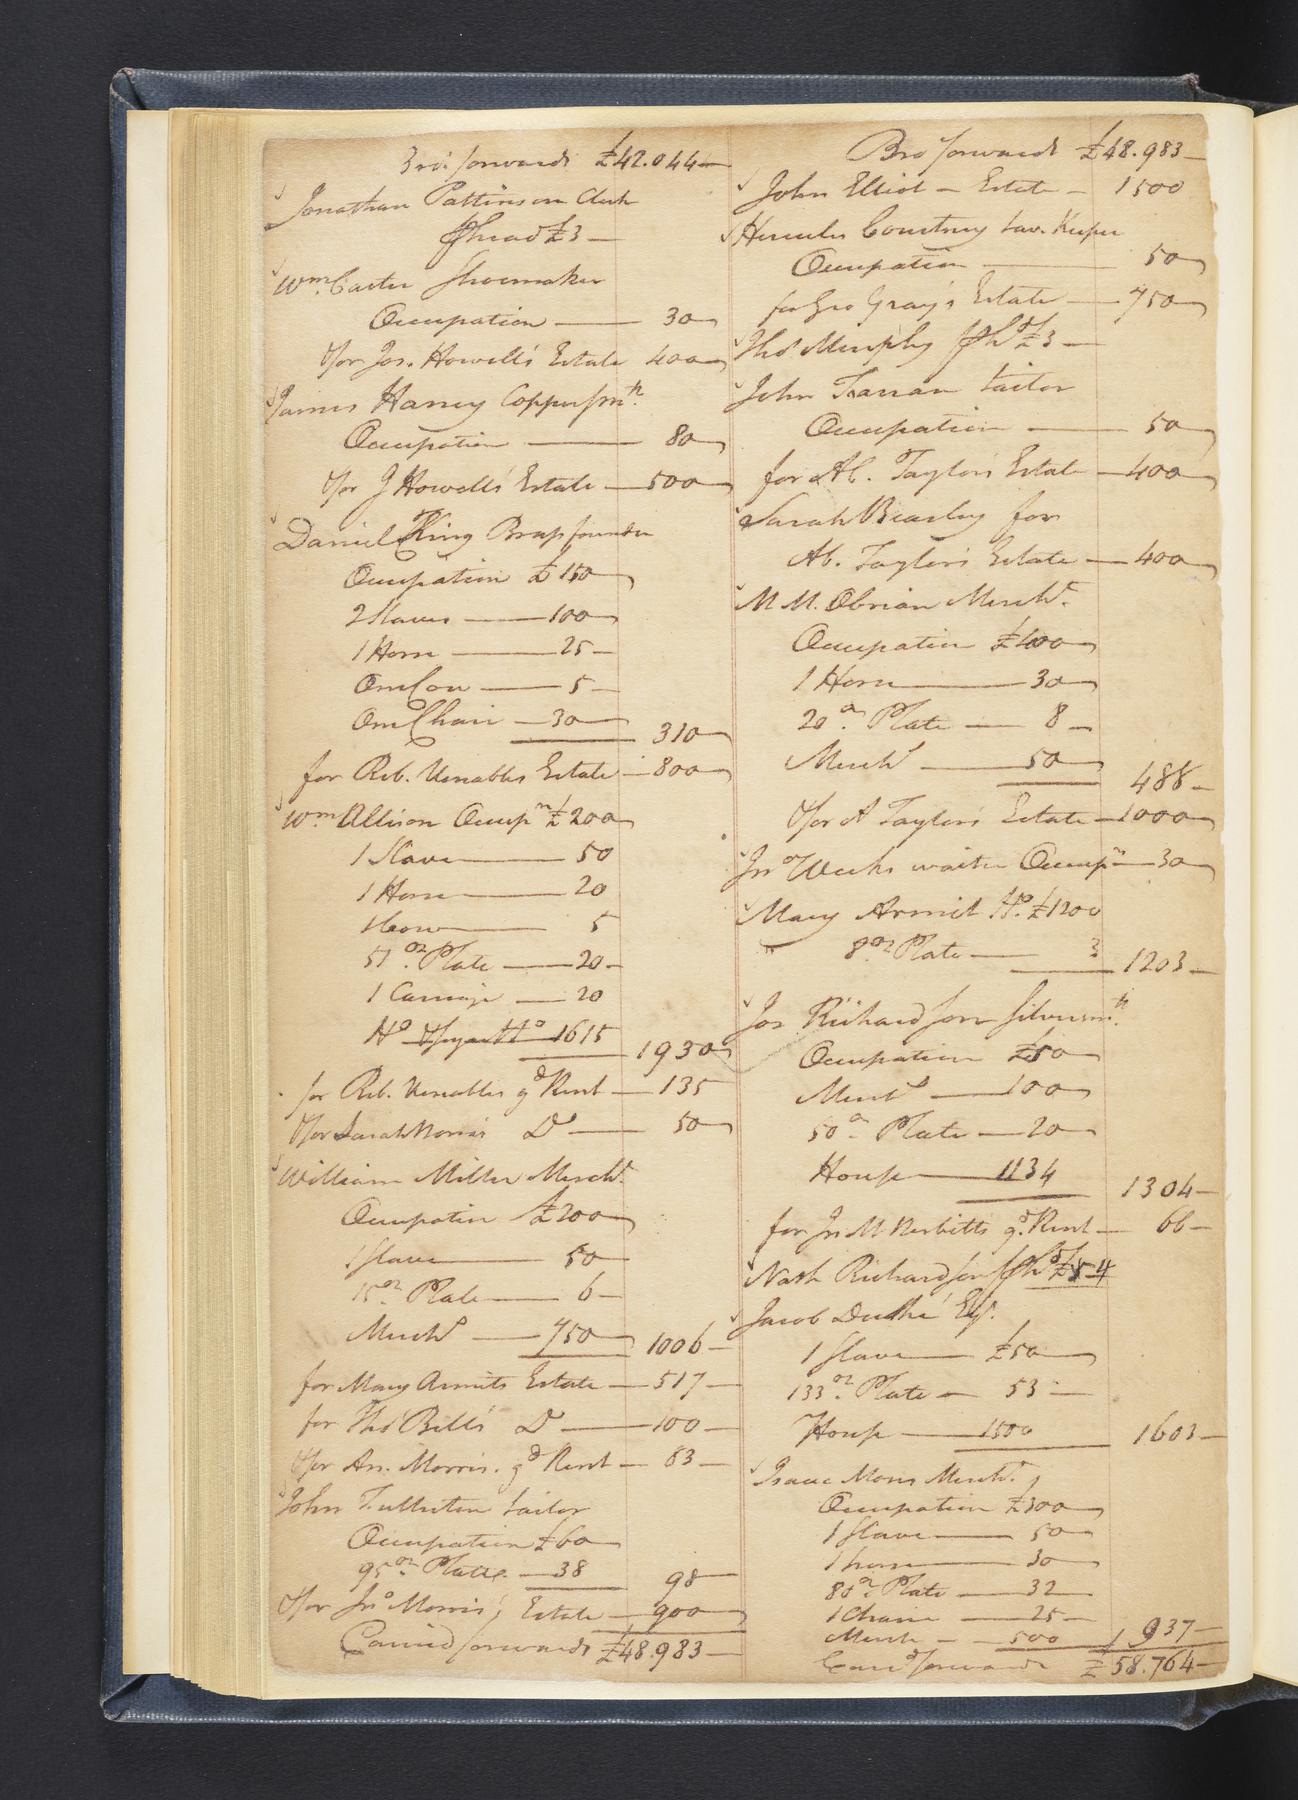 Bro.t forwards £42.044
Jonathan Pattinson Clerk
P head £3
Wm. Carter Shoemaker
Occupation 30
for Jos. Howell's Estate 400
James Haney Coppersmth.
Occupation 80
for J Howell's Estate 500
Daniel King Brassfounder
Occupation £150
2 Slaves 100
1 Horse 25
One Cow 5
One Chair 30
310
for Rob. Venables Estate 800
Wm Allison Occupn £200
1 Slave 50
1 Horse 20
1 Cow 5
51 oz. Plate 20
1 Carriage 20
Ho 1615
1930
for Rob. Venables gd Rent 135
for Sarah Morris Do 50
William Miller Mercht.
Occupation £200
1 Slave 50
15 oz Plate 6
Merchd 750
1006
for Mary Armits Estate 517
for Thos Bell's Do 100
for An. Morris. gd Rent 83
John Fullerton tailor
Occupation £60
95 oz. Plate 38
98
for Jno Morris's Estate 900
Carried forwards £48.983
Bro forwards £48.983
John Elliot Estate 1500
Hercules Courtney tav. Keeper
Occupation 50
for Geo Gray's Estate 750
Thos Murphy P hd £3
John Farran tailor
Occupation 50
for Ab. Taylor's Estate 400
Sarah Bearley for
Ab. Taylor's Estate 400
M M. Obrian Mercht.
Occupation £400
1 Horse 30
20 oz. Plate 8
Merchd 50
488
for A Taylor's Estate 1000
Jno Weeks waiter Occupn 30
Mary Armit Ho. £1200
" 8 oz Plate 3
1203
Jos Richardson Silversmth.
Occupation £50
Merchd 100
50 oz Plate 20
House 1134
1304
for Jn M Nesbitts gd. Rent 66
Nath Richardson P hd £4
Jacob Duché Esq.
1 Slave £50
133 oz. Plate 53
House 1500
1603
Isaac Moses Mercht.
Occupation £300
1 Slave 50
1 horse 30
80 oz Plate 32
1 Chaise 25
Merch 500
937
Carrd forwards £58.764